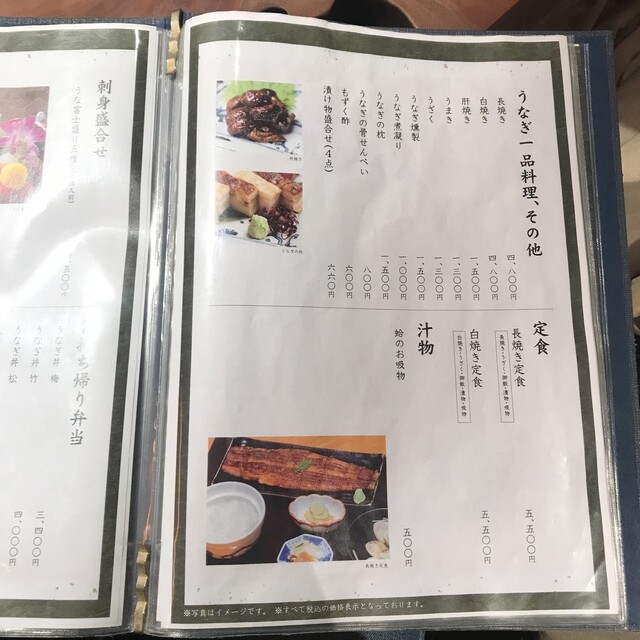 うなぎ一品料理、その他
長焼き 四、八〇〇円
白焼き 四、八〇〇円
肝焼き 一、五〇〇円
うまき 一、三〇〇円
うざく 一、三〇〇円
うなぎ燻製 一、五〇〇円
うなぎ煮凝り 一、〇〇〇円
うなぎの枕 一、五〇〇円
うなぎの骨せんべい 八〇〇円
もずく酢 六〇〇円
漬け物盛合せ(4点) 六六〇円
肝焼き
うなぎの枕
定食
長焼き定食 五、五〇〇円
長焼き・うざく・御飯・漬物・吸物
白焼き定食 五、五〇〇円
白焼き・うざく・御飯・漬物・吸物
汁物
蛤のお吸物 五〇〇円
長焼き定食
※写真はイメージです。 ※すべて税込の価格表示となっております。
刺身盛合せ
うな富士盛り三種
五〇〇円
帰り弁当
うなぎ丼 梅
うなぎ丼 竹 三、四〇〇円
うなぎ丼 松 四、〇〇〇円